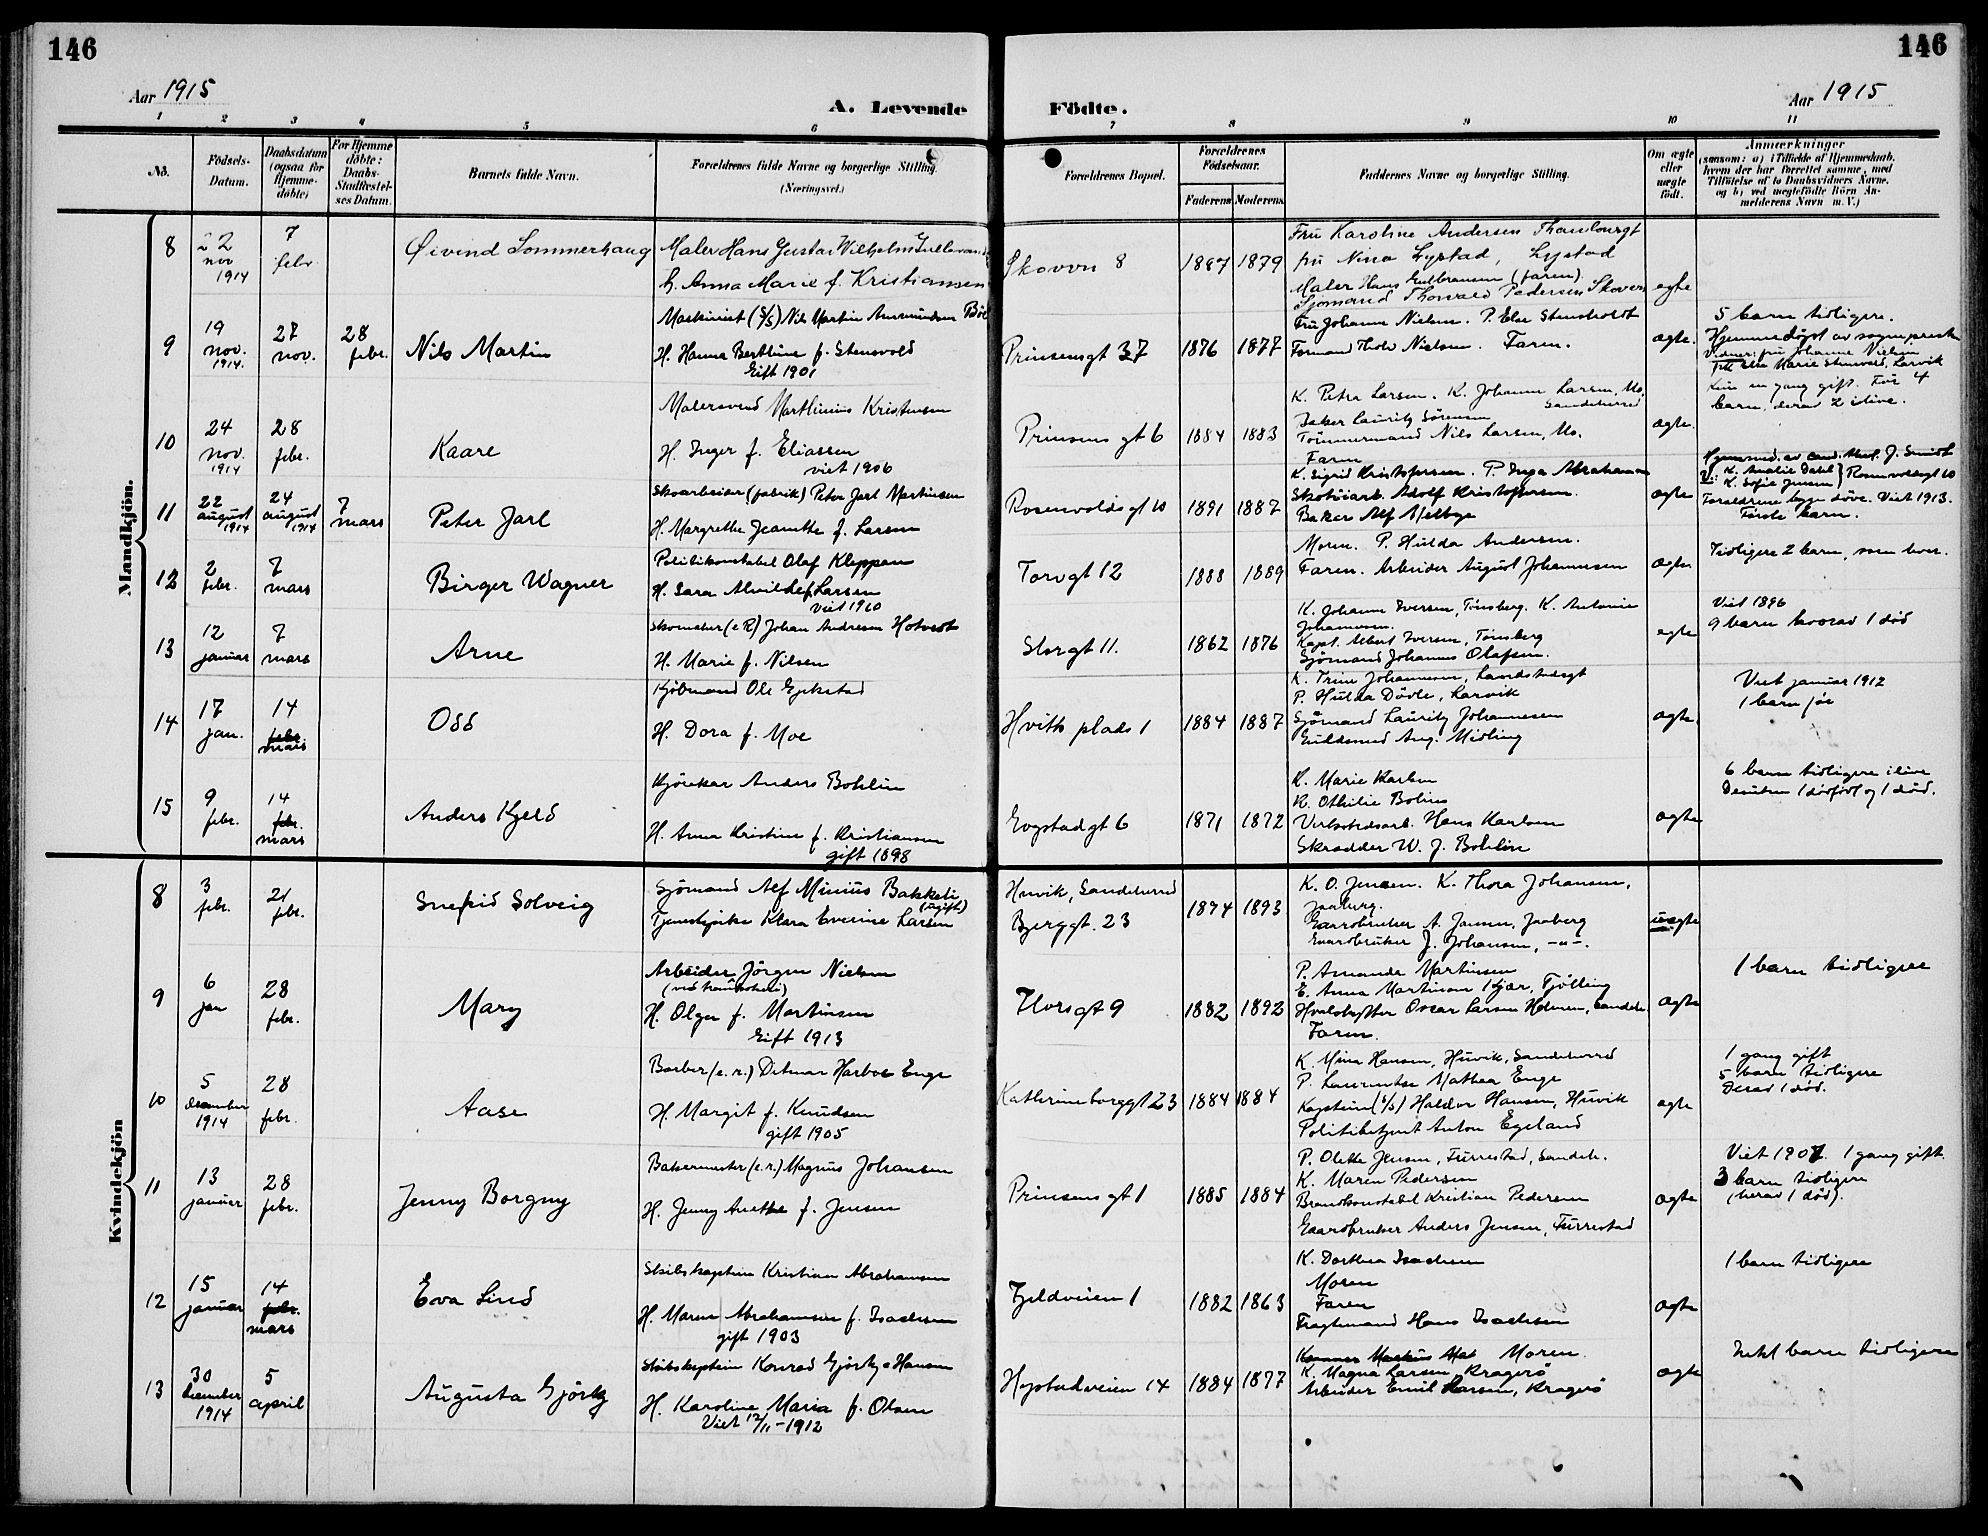 146
146
Aar 1915
A. Levende
Födte.
Aar 1915
1 2 3 4 5 6 7 8 9 10 11
No.
Födsels-
Datum.
Daabsdatum
(ogsaa for
Hjemme-
döbte)
For Hjemme
döbte:
Daabs-
Stadfæstel-
ses Datum.
Barnets fulde Navn.
Forældrenes fulde Navne og borgerlige Stilling.
(Næringsvei.)
Forældrenes Bopæl.
Forældrenes
Födselsaar.
Faderens Moderens
Faddernes Navne og borgerlige Stilling.
Om ægte
eller
uægte
födt.
Anmærkninger
(saasom: a) i Tilfælde af Hjemmedaab,
hvem der har forrettet samme, med
Tilföielse af to Daabsvidners Navne,
og b) ved uegtefödte Börn An-
melderens Navn m. V.)
Mandkjön.
8
22
nov
1914
7
febr
Øivind Sommerhaug
Maler Hans Gustav Wilhelm
h. Anna Marie f. Kristiansen
Skovvn 8
1887 1879
Fru Karoline Andersen
fru Nina Lystad, Lystad
Maler Hans Gulbransen (faren)
Sjømand Thorvald Pedersen Skoven
egte
9
19
nov.
1914.
27
nov.
28
febr.
Nils Martin
Maskinist (S/S) Nils Martin Amundsen
H. Hanna Berthine f. Stensvold
Gift 1901
Prinsensgt 37
1876 1877
Fru Johanne Nielsen. P. Else Stensholdt
Formand Thole Nielsen. Faren.
ægte.
5 barn tidligere.
Hjemmedöpt av sogneprest
Vidner: fru Johanne Nielsen
Frk Else Marie Stensvold, Larvik
10
24
nov.
1914
28
febr.
Kaare
Malersvend Marthinius Kristensen
H. Inger f. Eliassen
viet 1906
Prinsens gt 6
1884 1883
K. Petra Larsen. K. Johanne Larsen, Mo,
Sandeherred
Baker Lauritz Sørensen
Tömmermand Nils Larsen, Mo.
Faren
ægte.
Kun en gang gift. Før 4
barn, derav 2 ilive.
11
22
august
1914
24
august
1914
7
mars
Peter Jarl
Skoarbeider (fabrik) Peter Jarl Martinsen
H. Margrethe Jeanette f. Larsen
Rosenvoldsgt 10
1891 1887
K. Sigrid Kristofersen. P. Inga Abrahamsen
Skotöiarb. Adolf Kristofersen.
Baker Alf Melbye
ægte
Hjemmed. av cand. theol. J. Smidt
V: K. Amalie Dahl
K. Sofie Jensen } Rosenvoldsgt 10
Foreldrene begge døve. Viet 1913.
Første barn.
12
2
febr.
7
mars
Birger Wagner
Politikonstabel Olaf Kleppan
H. Sara Alvilde f. Larsen
viet 1910
Torvgt 12
1888 1889
Moren. P. Hulda Andersen.
Faren. Arbeider August Johannesen
ægte
Tidligere 2 barn, som lever.
13
12
januar
7
mars
Arne
Skomaker (e R) Johan Andresen Hotvedt
H. Marie f. Nilsen
Storgt 11.
1862 1876
K. Johanne Iversen, Tønsberg. K. Antonie
Johannesen.
Kapt. Albert Iversen, Tønsberg
Sjømand Johannes Olafsen.
egte
Viet 1896
9 barn hvorav 1 død
14
17
jan.
14
febr.
mars
Odd
Kjöbmand Ole Gjekstad
H. Dora f. Moe
Hvitts plads 1
1884 1887
K. Trine Johannesen, Landstadsgt
P. Hulda Dövle, Larvik
Sjømand Lauritz Johannesen
Guldsmed Aug. Midling
ægte.
Viet januar 1912
1 barn før
15
9
febr.
14
febr.
mars
Anders Kjeld
Kjörekar Anders Bohlin
H. Anna Kristine f. Kristiansen
gift 1898
Gogstadgt 6
1871 1872
K. Marie Karlsen
K. Othilie Bolins
Verkstedsarb. Hans Karlsen
Skrædder W. J. Bohlin
ægte
6 barn tidligere ilive
Desuten 1 dödfödt og 1 död.
Kvindekjön
8
3
febr.
21
febr.
Snefrid Solveig
Sjømand Alf Minius Bakkeli
(ugift)
Tjenestepike Klara Everine Larsen
Huvik, Sandeherred
Bjerggt. 23
1894 1893
K. O. Jensen. K. Thora Johansen,
Jaaberg.
Gaardbruker A. Jensen, Jaaberg
Gaardbruker J. Johansen, -"-.
uægte
9
6
jan
28
febr.
Mary
Arbeider Jörgen Nielsen
H. Olga f. Martinsen
Gift 1913
Thorsgt 9
1882 1892
P. Amanda Martinsen
E. Anna Martinsen Kjær, Tjölling
Hvalskytter Oscar Larsen Holmen, Sandeh.
Faren.
ægte
1 barn tidligere
10
5
desember
1914
28
febr.
Aase
Barber (e. r.) Ditmar Harboe Enge
H. Margit f. Knudsen
gift 1905
Katherineborggt 23
1884 1884
K. Mina Hansen, Huvik, Sandeherred
P. Laurentse Mathea Enge
Kaptein (s/s) Haldor Hansen, Huvik
Politibetjent Anton Egeland
ægte
1 gang gift
5 barn tidligere
Derav 1 död.
11
13
januar
28
febr.
Jenny Borgny
Bakermester (e. r.) Magnus Johansen
H. Jenny Anette f. Jensen
Prinsens gt 1
1885 1884
P. Olette Jensen, Furrestad, Sandeh.
K. Maren Pedersen
Brandkonstabel Kristian Pedersen
Gaardbruker Anders Jensen, Furrestad
ægte
Viet 1907. 1 gang gift.
3 barn tidligere
(herav 1 död).
12
15
januar
14
febr.
mars
Eva Lind
Skibskaptein Kristian Abrahamsen
H. Maren Abrahamsen f. Isachsen
gift 1903
Fjeldveien 1
1882 1863
K. Dorthea Isachsen
Moren
Faren
Fragtemand Hans Isachsen
ægte
1 barn tidligere
13
30
desember
1914
5
april
Augusta Gjörtz
Skibskaptein Konrad Gjörtz Hansen
H. Karoline Maria f. Olsen
Viet 12/11-1912
Hystadveien 14
1884 1877
Moren.
K. Magna Larsen, Kragerø
Arbeider Emil Larsen, Kragerø
ægte
Intet barn tidligere